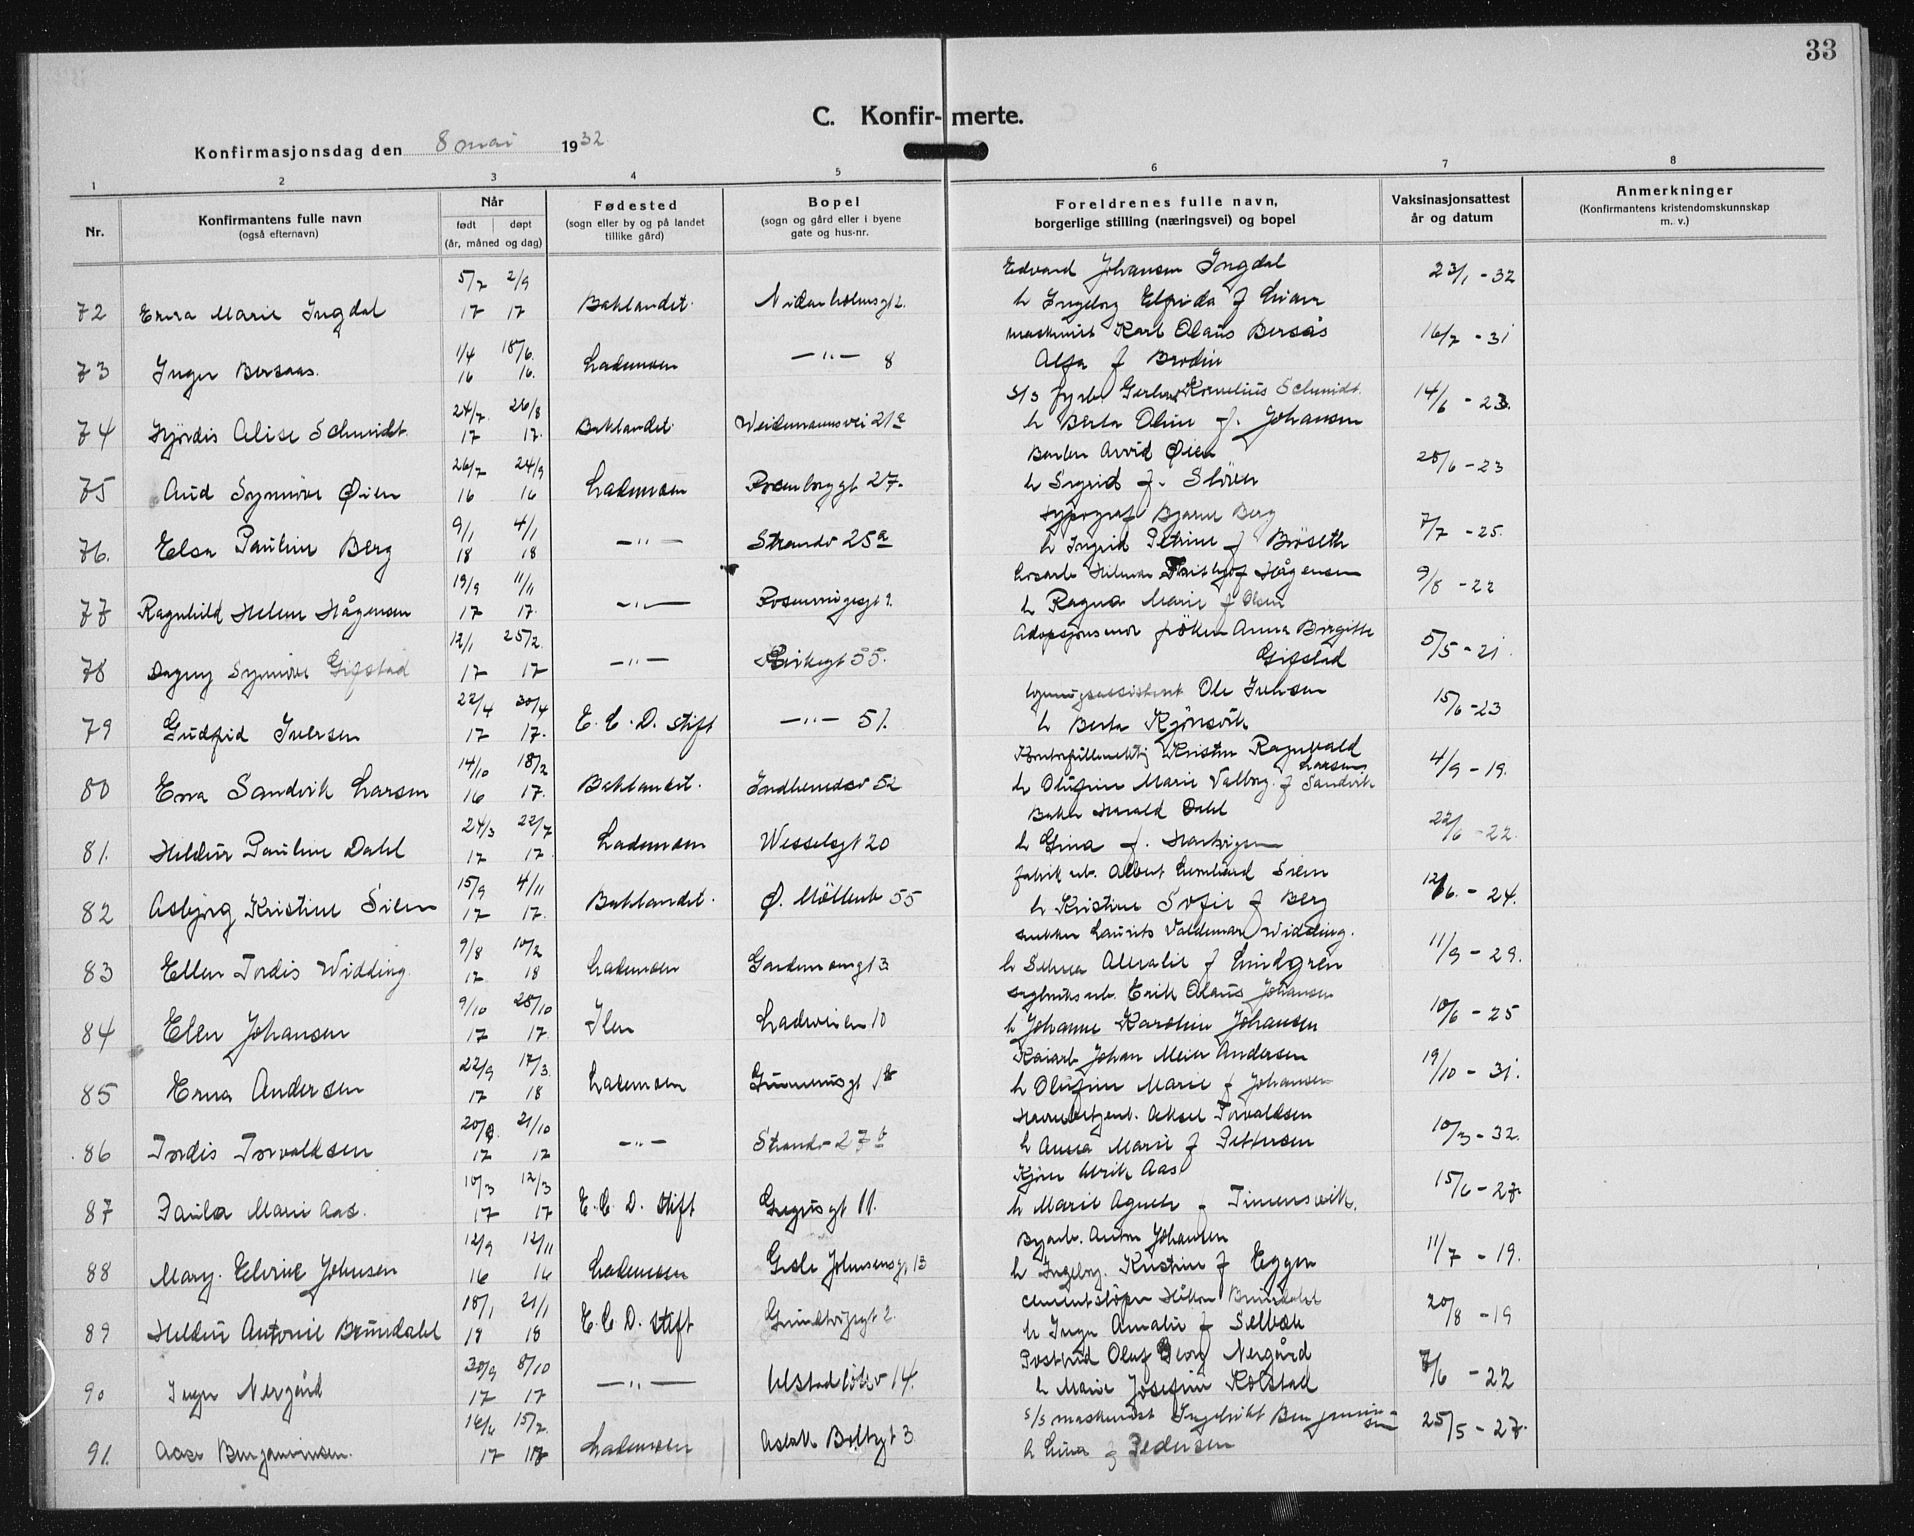 33
C. Konfirmerte.
Konfirmasjonsdag den 8 mai 1932
1 2 3 4 5 6 7 8
Nr.
Konfirmantens fulle navn
(også efternavn)
Når
født døpt
(år, måned og dag)
Fødested
(sogn eller by og på landet
tillike gård)
Bopel
(sogn og gård eller i byene
gate og hus-nr.
Foreldrenes fulle navn,
borgerlige stilling (næringsvei) og bopel
Vaksinasjonsattest
år og datum
Anmerkninger
(Konfirmantens kristendomskunnskap
m. v.)
5/7 2/9 Edvard Johansen Ingdal 23/1 - 32
72 Erna Marie Ingdal 17 17 Baklandet. Nidarholmsgt 2. h Ingeborg Elfrida f
1/4 18/6. maskinist Karl Olaus Bersås 16/7 - 31
73 Inger Bersaas. 16 16. Lademoen —"— 8 f Brodin
24/7 26/8 Kornelius Schmidt. 14/6 - 23.
74 Hjördis Alise Schmidt 17 17. Baklandet. Weidemannsvei 21a h Berta Oline f. Johansen
26/7 24/9 Arvid Øien 28/6 - 23
75 Aud Synnöve Øien 16 16 Lademoen Rosenborggt 27. h Sigrid f. Stören
9/1 4/1 typograf Bjarne Berg 7/7 - 25.
76. Elsa Pauline Berg 18 18 —"— Strandv 25a h Ingrid Petrine f Bröseth
19/9 11/11 Hilmar Fritjof Hågensen 9/8 - 22
77 Ragnhild Helene Hågensen 17 17. —"— h Ragna Marie f Olsen
12/1 25/2. Adopsjonsmor fröken Anna Birgitte 5/5 - 21.
78 Dagny Synnöve Gifstad 17 17 —"— Kirkegt 55. Gifstad
22/4 30/4 Ole Iversen 15/6 - 23
79 Gudfrid Iversen 17 17. E. C. D. Stift —"— 51. h Berta Kjönsvik
14/10 18/2 Kristen Ragnvald Larsen 4/9 - 19.
80 Erna Sandvik Larsen 16 17. Baklandet. Indherredsv 52 h Olufine Marie Valborg. f Sandvik
24/3 22/7 Baker Harald Dahl 22/6 - 22.
81. Hildur Pauline Dahl 17 17. Lademoen Wesselsgt 20 h Gina f.
15/9 4/11 fabrik arb. Albert Leonhard Siem 12/6. - 24.
82 Asbjörg Kristine Siem 17 17. Baklandet. Ø. Möllenb 55 h Kristine Sofie f Berg
9/8 10/2 snekker Laurits Valdemar Widding. 11/9 - 29.
83 Ellen Tordis Widding 17 18 Lademoen Gardemoengt 3 h Selma Amalie f Lindgren
9/10 28/10 Erik Olaus Johansen 10/6 - 25
84 Elen Johansen 17 17. Ilen Ladeveien 10 h Johanne Karoline Johansen
22/9 17/3. Kaiarb Johan Meier Andersen 19/10 - 31.
85 Erna Andersen 17 18 Lademoen h Olufine Marie f Johansen
21/10 Aksel Torvaldsen 10/3 - 32.
86 Tordis Torvaldsen 17 17 —"— Strandv 27b h Anna Marie f Pettersen
10/3 12/3 Ulrik Aas 15/6 - 27.
87 Paula Marie Aas. 17 17 E. C. D. Stift Gregusgt 11. h Marie Agnete f
12/9 12/11 Byarb. Anton Johansen 11/7 - 19.
88 Mary. Elvine Johnsen 16 16 Lademoen Gisle Johnsonsgt 13 h Ingeborg. Kristine f Eggen
18/1 21/1 Cementstöper Håkon Brundahl 20/8 - 19
89 Hildur Antonie Brundahl 18 18 E. C. D. Stift Grundtvigsgt 2. h Inga Amalie f Selbæk
30/9 8/10 Postbud Olaf Georg Nergård 7/6 - 22
90 Inger Nergård 17 17 —"— Ulstadlökv 14. h Marie Josefine Kolstad
16/6 15/2. s/s maskinist Ingebrikt Benjaminsen 25/5 - 27.
91. Aase Benjaminsen. 17 18 Lademoen Aslak Boltsgt 3 h Lina f Pedersen